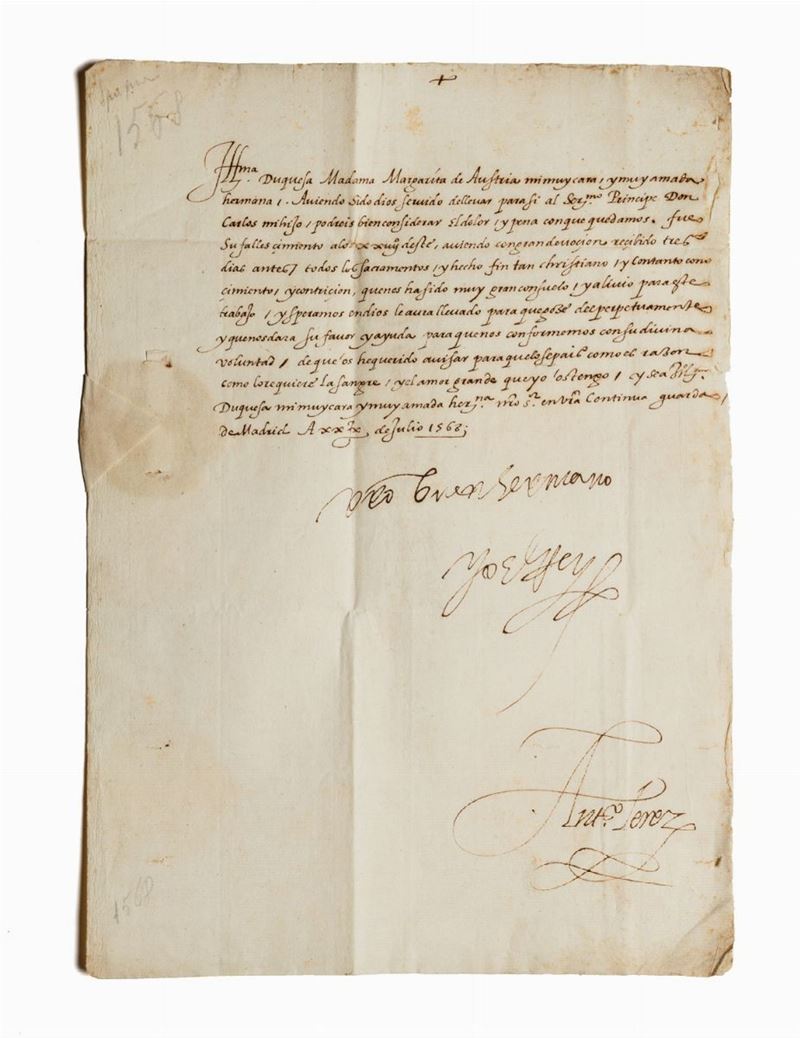 1568
Illma. Duquesa Madama Margarita de Austria mi muy cara, y muy amada
hermana, . Aviendo sido dios servido de llevar para si al Sermo Principe Don
Carlos mi hijo, podreis bien considerar El dolor, y pena con que quedamos. fue
Su fallescimiento a los xxiiij deste, aviendo con gran devocion recibido tres
dias antes, todos los Sacramentos, y hecho fin tan christiano, y Con tanto cono
cimiento, y contricion, que nos ha sido muy gran consuelo, y alivio para este
trabajo, y speramos en dios le avra llevado para que goze del perpetuamente
y que nos dara su favor y ayuda para que nos conformemos con su divina
voluntad, de que os he querido avisar para que lo sepais como es razon
como lo requiere la sangre, y el amor grande que yo os tengo, y sea Illma.
Duquesa mi muy cara y muy amada herna nro Sr. en vra Continua guarda,
de Madrid A xxix de Julio 1568;
Vro buen hermano
Yo El Rey
Anto. Perez
1568